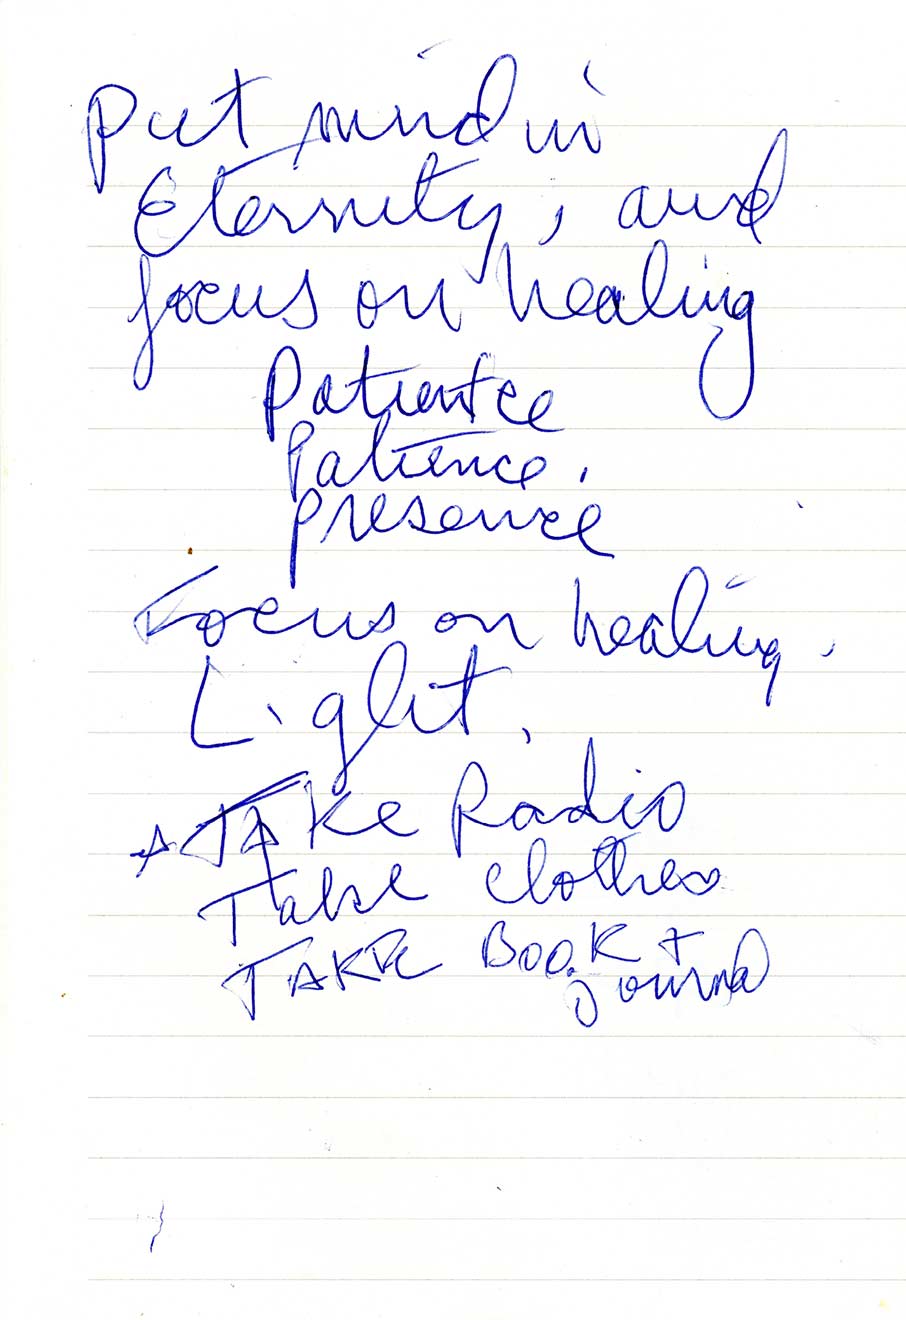 Put mind in
Eternity, and
focus on healing
Patientce
Patience,
presence
Focus on healing.
Light.
* TAKe Radio
Take clothes
TAKE BooK +
Journal